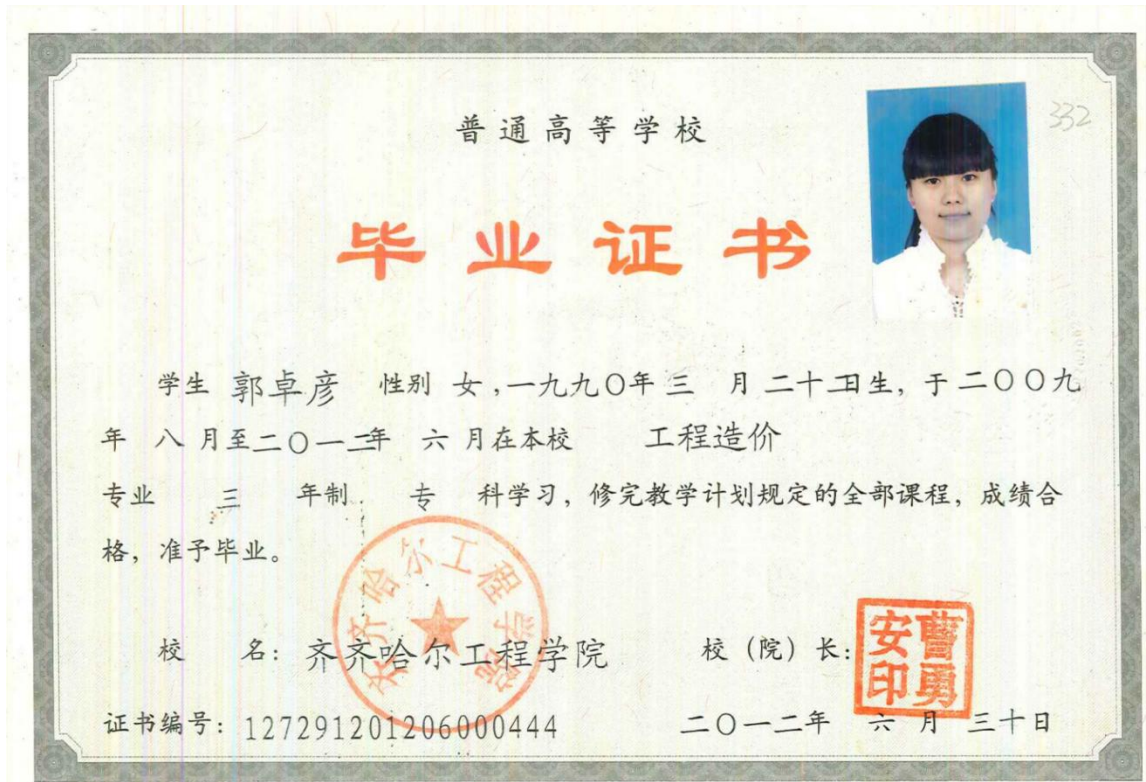 普通高等学校
332
毕业证书
学生 郭卓彦 性别 女，一九九〇年 三 月 二十二日生，于二〇〇九
年 八 月至二〇一二年 六 月在本校 工程造价
专业 三 年制 专 科学习，修完教学计划规定的全部课程，成绩合
格，准予毕业。
齐齐哈尔工程学院
校 名：齐齐哈尔工程学院 校（院）长：
曹勇安印
证书编号：127291201206000444 二〇一二年 六 月 三十日